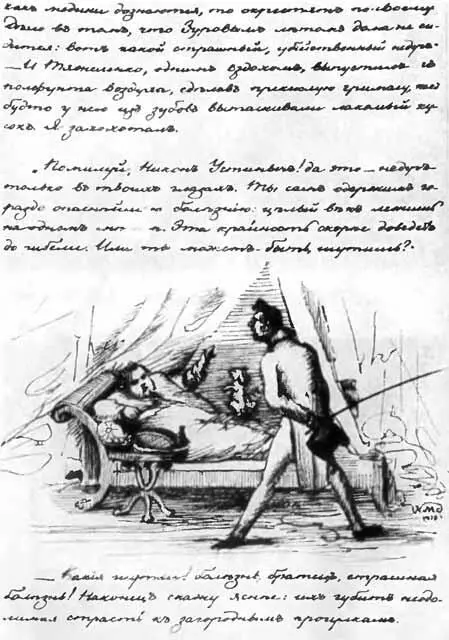 какъ медики дознаются, то окрестятъ по-своему.
Дѣло въ томъ, что Зуровымъ лѣтомъ дома не си-
дится: вотъ какой страшный, убійственный недугъ.
— И Тяжеленко, однимъ вздохомъ, выпустилъ съ
полфунта воздуха, сдѣлавъ прекислую гримасу, какъ
будто у него изъ зубовъ вытаскивали лакомый ку-
сокъ. Я захохоталъ.
„Помилуй, Никонъ Устинычъ! да это — недугъ
только въ твоихъ глазахъ. Ты самъ одержимъ го-
раздо опаснѣйшею болѣзнію: цѣлый вѣкъ лежишь
на одномъ Эта крайность скорѣе доведетъ
до гибели. Или ты можетъ-быть, шутишь?"
— Какія шутки! болѣзнь, братецъ, страшная
болѣзнь! Наконецъ скажу яснѣе: ихъ губитъ неодо-
лимая страсть къ загороднымъ прогулкамъ.